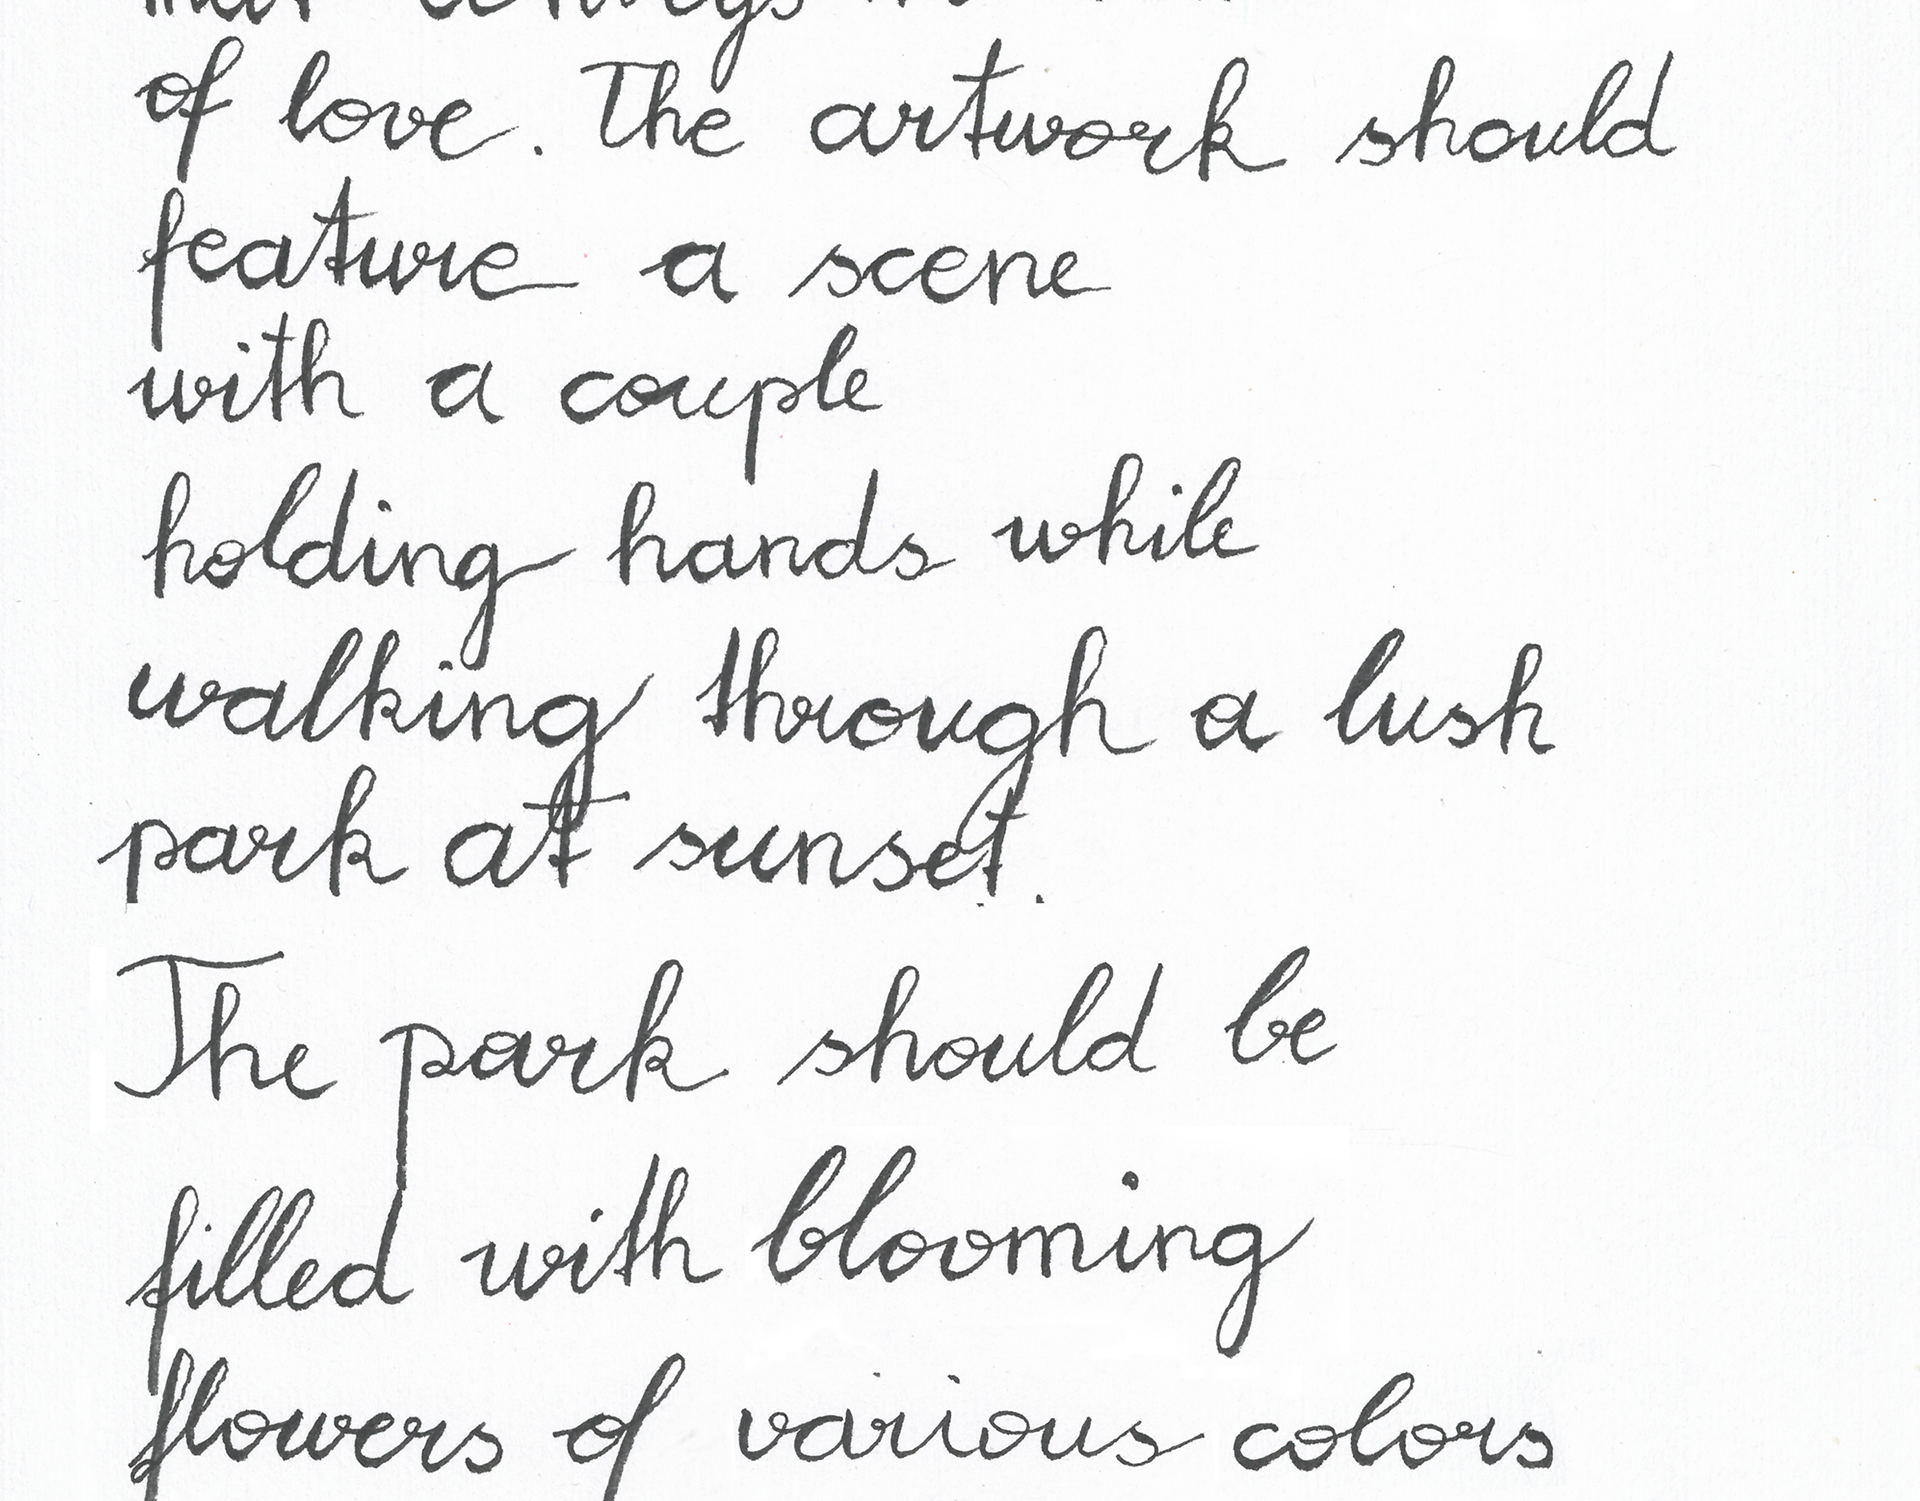 of love. The artwork should
feature a scene
with a couple
holding hands while
walking through a lush
park at sunset.
The park should be
filled with blooming
flowers of various colors